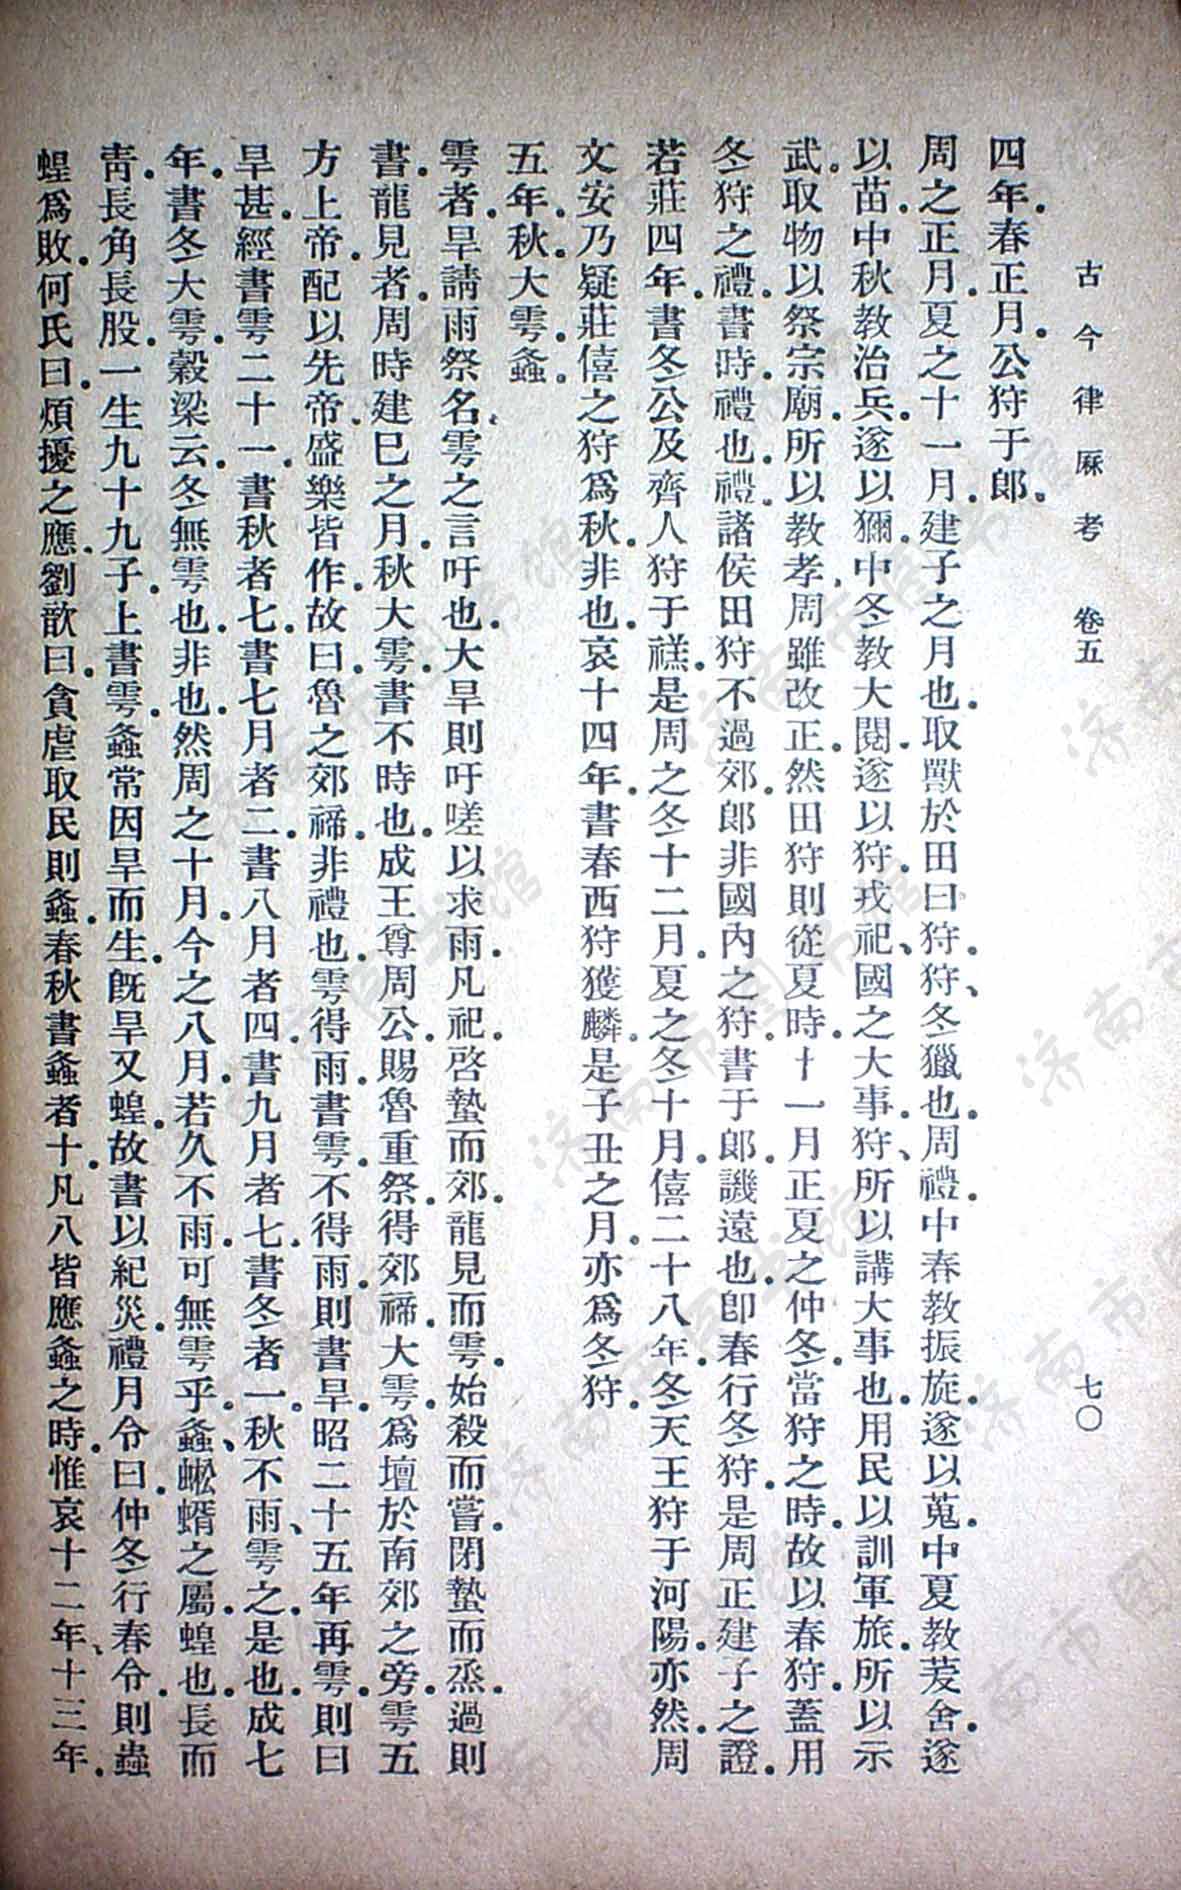 古今律厤考 卷五 七〇
四年。春正月。公狩于郞。
周之正月。夏之十一月。建子之月也。取獸於田曰狩。狩、冬獵也。周禮。中春教振旅。遂以蒐。中夏教茇舍。遂
以苗。中秋教治兵。遂以獮。中冬教大閱。遂以狩。戎祀、國之大事。狩、所以講大事也。用民以訓軍旅。所以示
武。取物以祭宗廟。所以教孝。周雖改正。然田狩則從夏時。十一月正夏之仲冬。當狩之時。故以春狩。蓋用
冬狩之禮。書時。禮也。禮。諸侯田狩不過郊。郞非國內之狩。書于郞。譏遠也。卽春行冬狩。是周正建子之證。
若莊四年。書冬。公及齊人狩于禚。是周之冬十二月。夏之冬十月。僖二十八年。冬。天王狩于河陽。亦然。周
文安乃疑莊僖之狩爲秋。非也。哀十四年。書春西狩獲麟。是子丑之月。亦爲冬狩。
五年。秋。大雩。螽。
雩者。旱請雨祭名。雩之言吁也。大旱則吁嗟以求雨。凡祀。啓蟄而郊。龍見而雩。始殺而嘗。閉蟄而烝。過則
書。龍見者。周時建巳之月。秋大雩。書不時也。成王尊周公。賜魯重祭。得郊禘。大雩。爲壇於南郊之旁。雩五
方上帝。配以先帝。盛樂皆作。故曰。魯之郊禘。非禮也。雩得雨。書雩。不得雨。則書旱。昭二十五年。再雩。則曰
旱甚。經書雩二十一。書秋者七。書七月者二。書八月者四。書九月者七。書冬者一。秋不雨、雩之。是也。成七
年。書冬大雩。穀梁云。冬無雩也。非也。然周之十月。今之八月。若久不雨。可無雩乎。螽、蜙蝑之屬。蝗也。長而
靑。長角長股。一生九十九子。上書雩。螽常因旱而生。旣旱又蝗。故書以紀災。禮月令曰。仲冬行春令。則蟲
蝗爲敗。何氏曰。煩擾之應。劉歆曰。貪虐取民則螽。春秋書螽者十。凡八皆應螽之時。惟哀十二年、十三年。